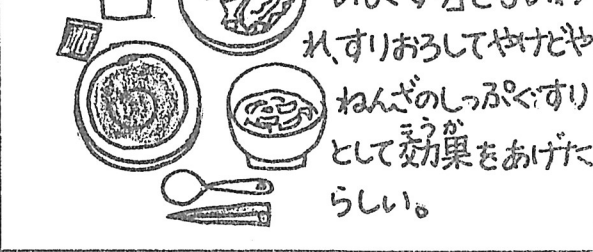 れ、すりおろしてやけどや
ねんざのしっぷぐすり
こうか
として効果をあげた
らしい。